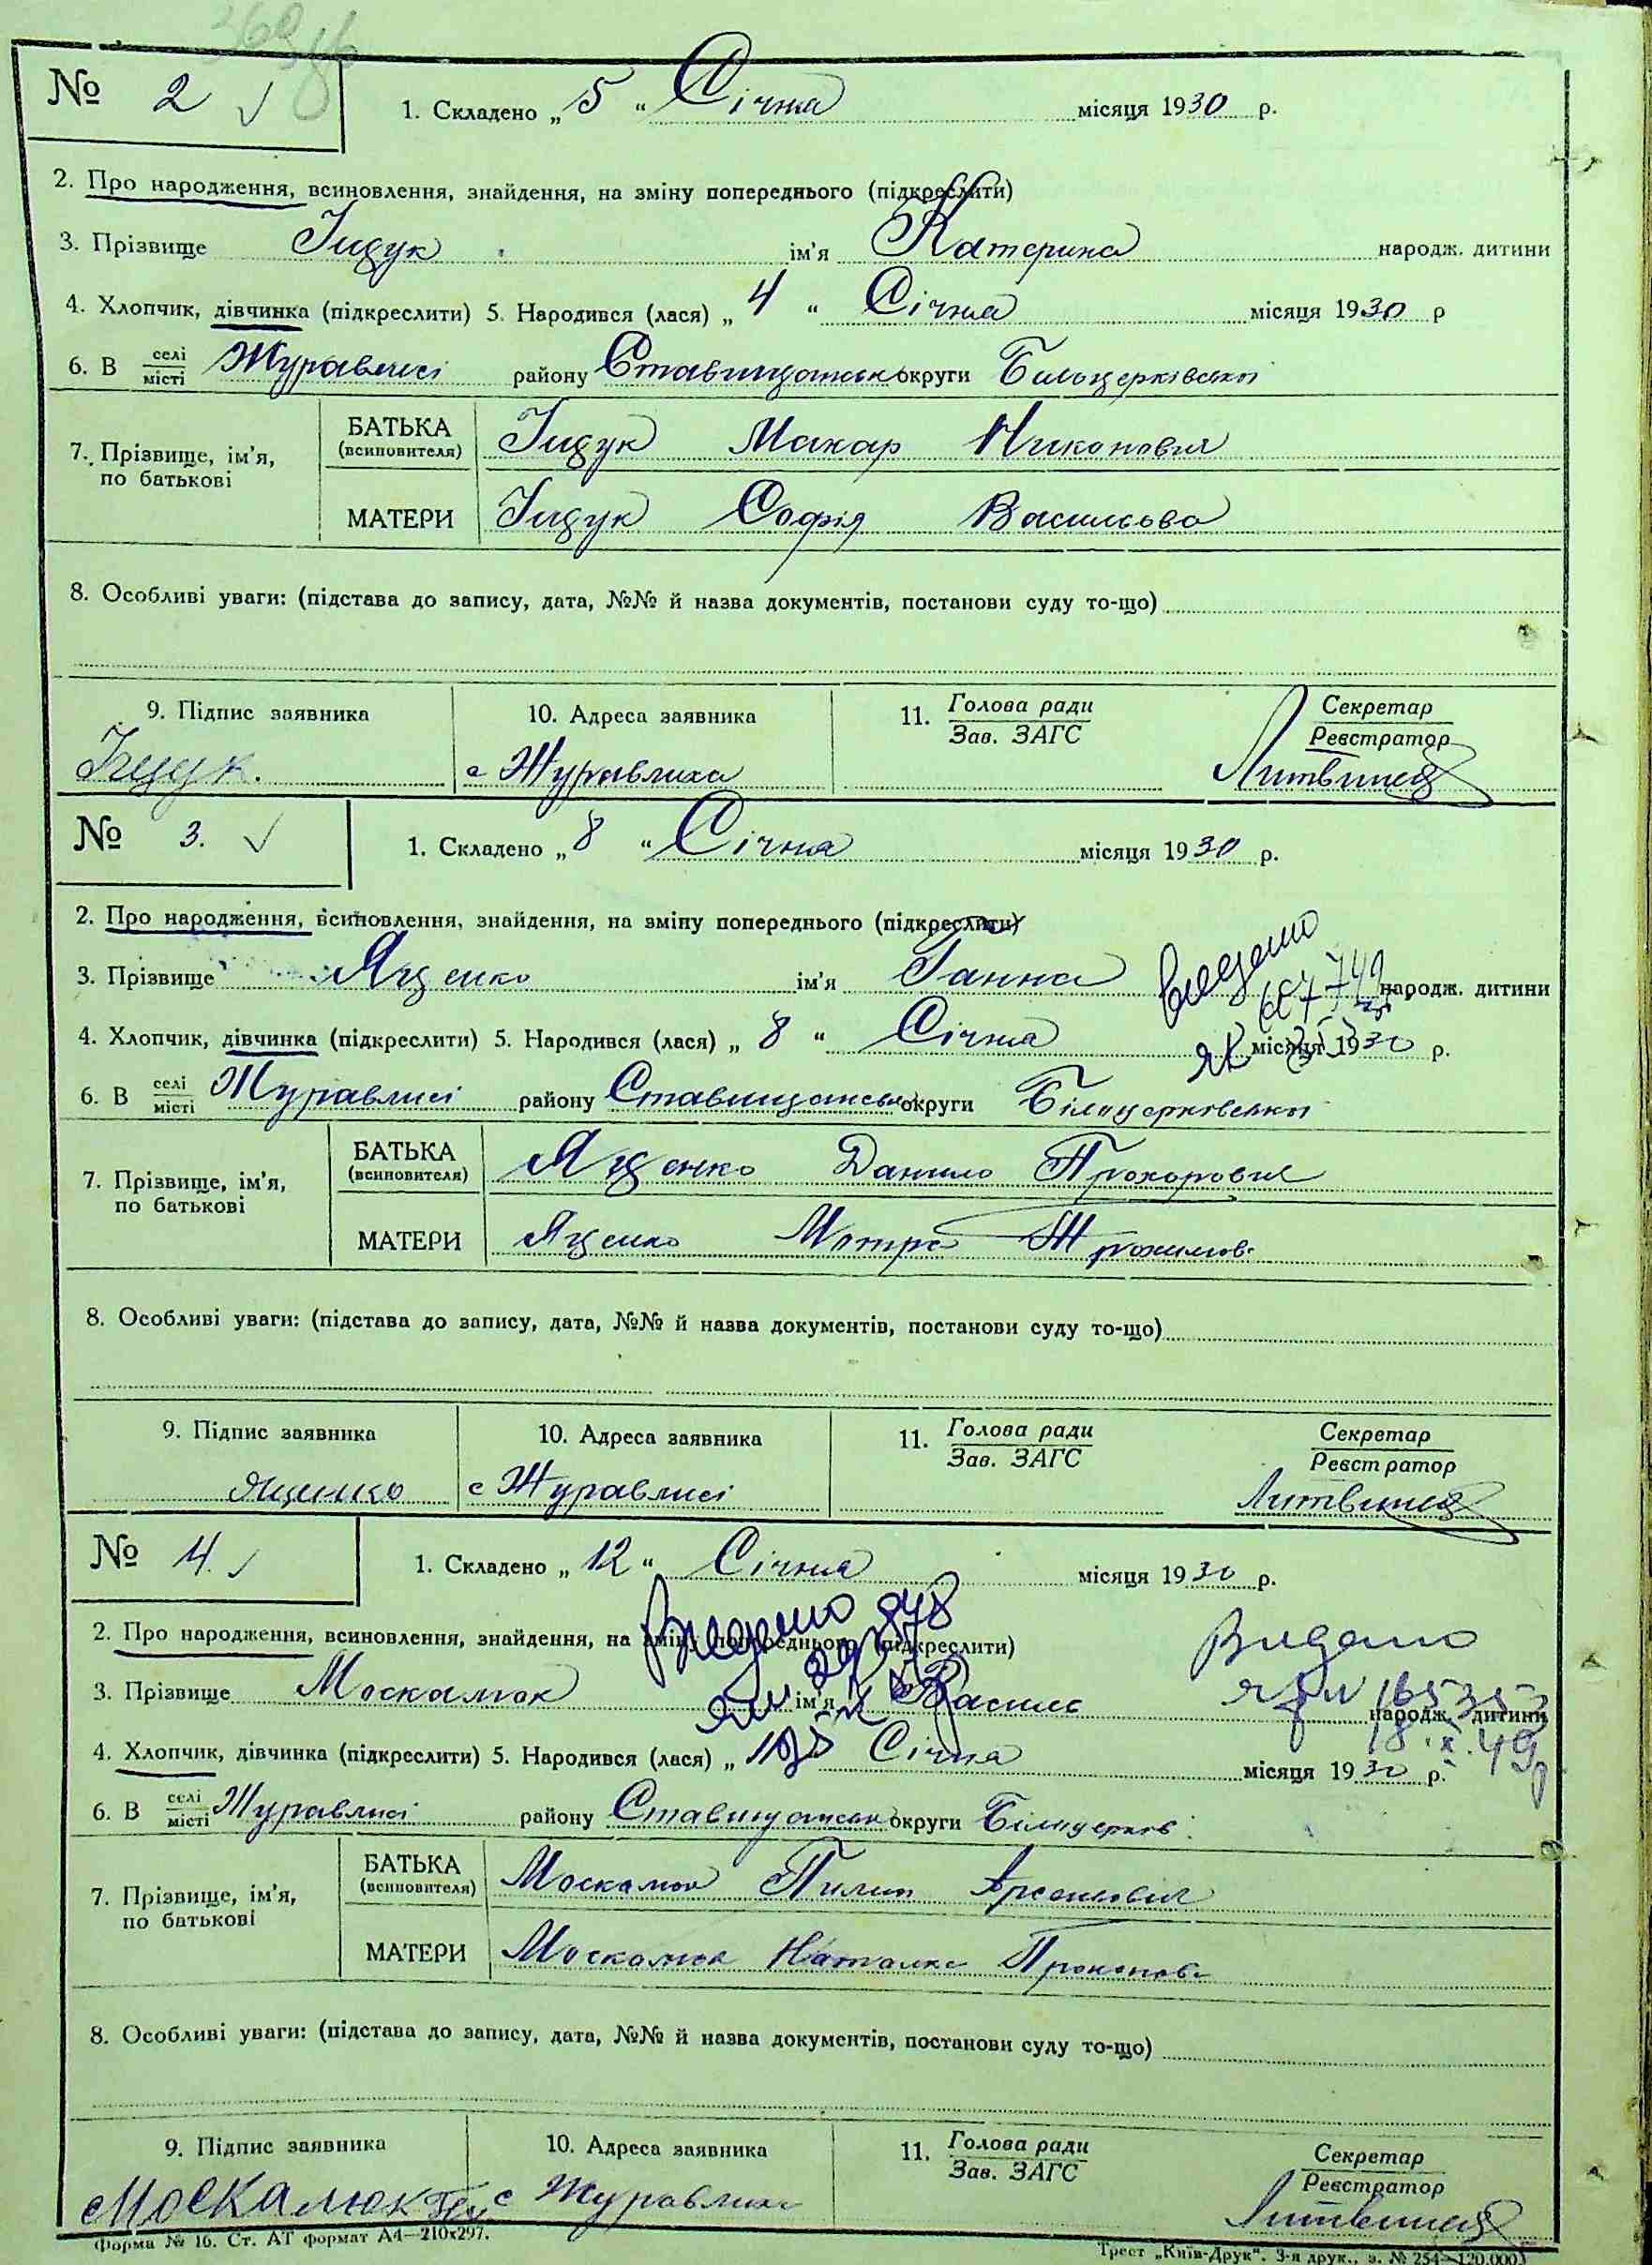 № 2
1. Складено „ 5 “ Січня місяця 1930 р.
2. Про народження, всиновлення, знайдення, на зміну попереднього (підкреслити)
3. Прізвище Іщук ім'я Катерина народж. дитини
4. Хлопчик, дівчинка (підкреслити) 5. Народився (лася) „ 4 “ Січня місяця 1930 р
6. В селі місті Журавлисі району Ставищанськ округи Більцерківської
7. Прізвище, ім'я, по батькові
БАТЬКА (всиновителя) Іщук Макар Никонович
МАТЕРИ Іщук Софія Васильова
8. Особливі уваги: (підстава до запису, дата, №№ й назва документів, постанови суду то-що)
9. Підпис заявника 10. Адреса заявника 11. Голова ради Зав. ЗАГС Секретар Реєстратор
Іщук. с Журавлиха
№ 3.
1. Складено „ 8 “ Січня місяця 1930 р.
2. Про народження, всиновлення, знайдення, на зміну попереднього (підкреслити)
3. Прізвище Ященко ім'я Ганна народж. дитини
4. Хлопчик, дівчинка (підкреслити) 5. Народився (лася) „ 8 “ Січня місяця 1930 р.
6. В селі місті Журавлисі району Ставищанськ округи Білоцерківської
7. Прізвище, ім'я, по батькові
БАТЬКА (всиновителя) Ященко Данило Прохорович
МАТЕРИ Ященко Мотря
8. Особливі уваги: (підстава до запису, дата, №№ й назва документів, постанови суду то-що)
9. Підпис заявника 10. Адреса заявника 11. Голова ради Зав. ЗАГС Секретар Реєстратор
Ященко с Журавлисі
№ 4.
1. Складено „ 12 “ Січня місяця 1930 р.
2. Про народження, всиновлення, знайдення, на зміну попереднього (підкреслити)
Видано
3. Прізвище Москалюк ім'я Василь народж. дитини
18.X.49р
4. Хлопчик, дівчинка (підкреслити) 5. Народився (лася) „ “ Січня місяця 1930 р.
6. В селі місті Журавлисі району Ставищанськ округи Білоцерків
7. Прізвище, ім'я, по батькові
БАТЬКА (всиновителя) Москалюк Пилип Арсенович
МАТЕРИ Москалюк Наталка
8. Особливі уваги: (підстава до запису, дата, №№ й назва документів, постанови суду то-що)
9. Підпис заявника 10. Адреса заявника 11. Голова ради Зав. ЗАГС Секретар Реєстратор
Москалюк с Журавлиха
Форма № 16. Ст. АТ формат А4—210х297.
Трест „Київ-Друк“. 3-я друк., з. № 254—120.000